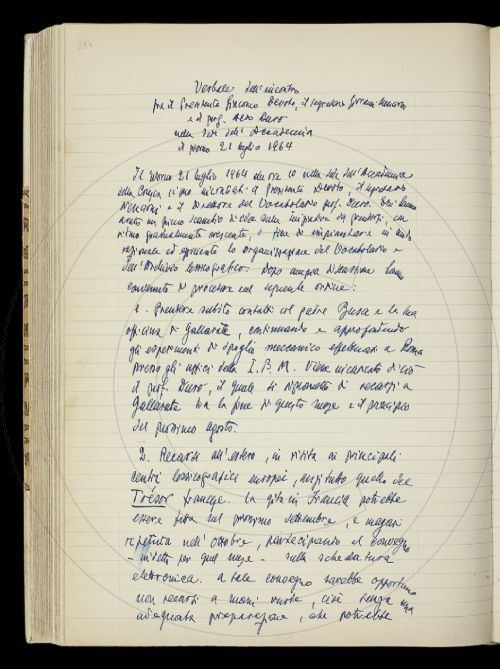 224
Verbale dell'incontro
fra il Presidente Giacomo Devoto, il segretario Giovanni Nencioni
e il prof. Aldo Duro
nella sede dell'Accademia
il giorno 21 luglio 1964
Il giorno 21 luglio 1964 alle ore 10 nella sede dell'Accademia
della Crusca si sono incontrati il presidente Devoto, il segretario
Nencioni e il Direttore del Vocabolario prof. Duro. Essi hanno
avuto un primo scambio di idee sulle iniziative da prendersi, con
ritmo gradualmente crescente, al fine di impiantare in modo
razionale ed efficiente la organizzazione del Vocabolario e
dell'Archivio lessicografico. Dopo ampia discussione hanno
convenuto di procedere nel seguente ordine:
1. Prendere subito contatti col padre Busa e la sua
officina di Gallarate, continuando e approfondendo
gli esperimenti di spoglio meccanico effettuati a Roma
presso gli uffici della I.B.M. Viene incaricato di ciò
il prof. Duro, il quale si ripromette di recarsi a
Gallarate tra la fine di questo mese e il principio
del prossimo agosto.
2. Recarsi all'estero, in visita ai principali
centri lessicografici europei, anzitutto quello del
Trésor francese. La gita in Francia potrebbe
essere fatta nel prossimo settembre, e magari
ripetuta nell'ottobre, partecipando al convegno
- indetto per quel mese - sulla schedatura
elettronica. A tale convegno sarebbe opportuno
non recarsi a mani vuote, cioè senza una
adeguata preparazione, che potrebbe